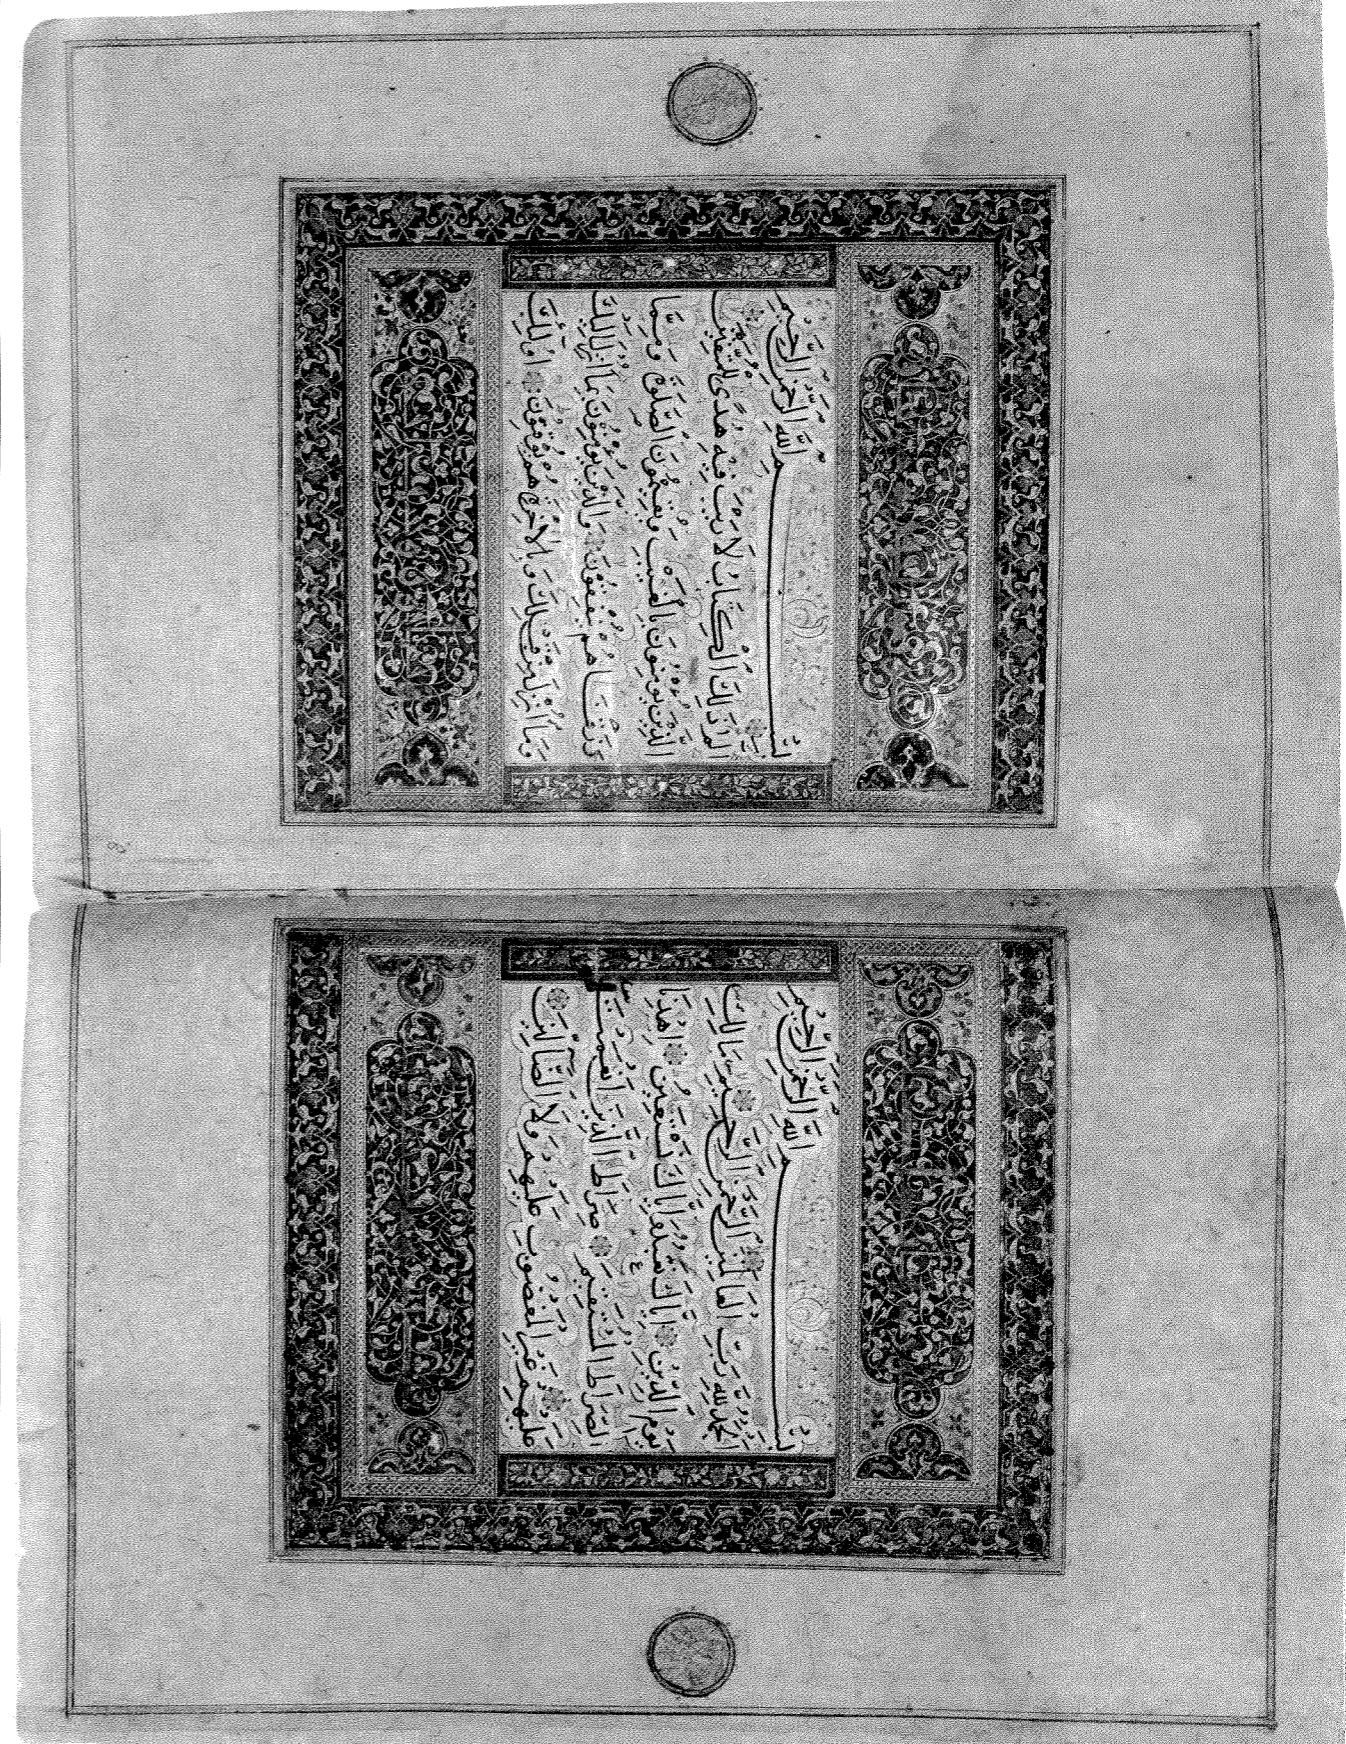 بِسْمِ اللَّهِ الرَّحْمَنِ الرَّحِيمِ
الْحَمْدُ لِلَّهِ رَبِّ الْعَالَمِينَ الرَّحْمَنِ الرَّحِيمِ مَالِكِ
يَوْمِ الدِّينِ إِيَّاكَ نَعْبُدُ وَإِيَّاكَ نَسْتَعِينُ اهْدِنَا
الصِّرَاطَ الْمُسْتَقِيمَ صِرَاطَ الَّذِينَ أَنْعَمْتَ
عَلَيْهِمْ غَيْرِ الْمَغْضُوبِ عَلَيْهِمْ وَلَا الضَّالِّينَ
بِسْمِ اللَّهِ الرَّحْمَنِ الرَّحِيمِ
الم ذَلِكَ الْكِتَابُ لَا رَيْبَ فِيهِ هُدًى لِلْمُتَّقِينَ
الَّذِينَ يُؤْمِنُونَ بِالْغَيْبِ وَيُقِيمُونَ الصَّلَوةَ وَمِمَّا
رَزَقْنَاهُمْ يُنْفِقُونَ وَالَّذِينَ يُؤْمِنُونَ بِمَا أُنْزِلَ إِلَيْكَ
وَمَا أُنْزِلَ مِنْ قَبْلِكَ وَبِالْآخِرَةِ هُمْ يُوقِنُونَ أُولَئِكَ